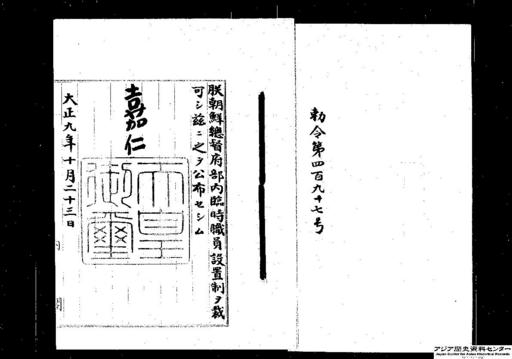 勅令第四百九十七号
朕朝鮮總督府部内臨時職員設置制ヲ裁
可シ茲ニ之ヲ公布セシム
嘉仁
天皇
御璽
大正九年十月二十三日
アジア歴史資料センター
Japan Center for Asian Historical Records